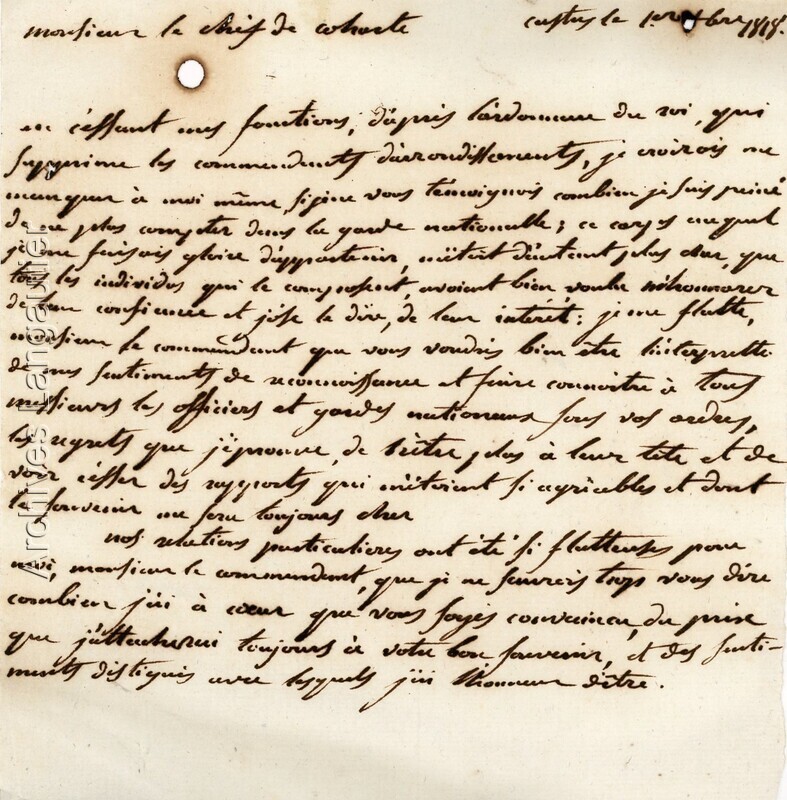 monsieur le chef de cohorte
castres le 1er 8bre 1818.
en césssant mes fonctions, d'àprès l'ordonnance du roi, qui
supprime les commendents d'àrrondissements, je croirois me
manquer à moi même, si je ne vous témoignois combien je suis peiné
de ne plus compter dans la garde nationalle; ce corps auquel
je me faisois gloire d'appartenir, m'étoit d'àutant plus cher, que
tous les individus qui le composent, avoient bien voulu m'honnorer
de leur confience et j'ôse le dire, de leur intérét; je me flatte,
monsieur le commendent que vous voudrés bien être l'interprette
de mes sentiments de reconnoissance et faire connoitre à tous
messieurs les officiers et gardes nationnaux sous vos ordres,
les regrets que j'éprouve, de n'être plus à leur tete et de
voir césser des rapports qui m'étoient si agréables et dont
le souvenir me sera toujours cher
nos relations particulieres ont été si flatteuses pour
moi, monsieur le commendent, que je ne saurois trop vous dire
combien j'ài à cœur que vous soyés convaincu, du prix
que j'àttacherai toujours à votre bon souvenir, et des senti-
ments distigués avec lesquels j'ài l'honneur d'être.
Archives Langautier